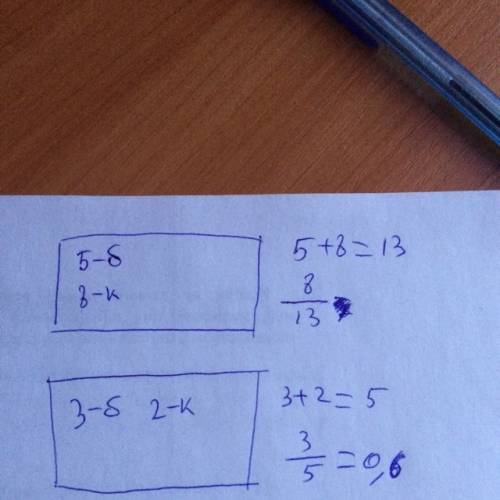 5-б
8-к
5+8=13
8/13
3-б 2-к
3+2=5
3/5=0,6